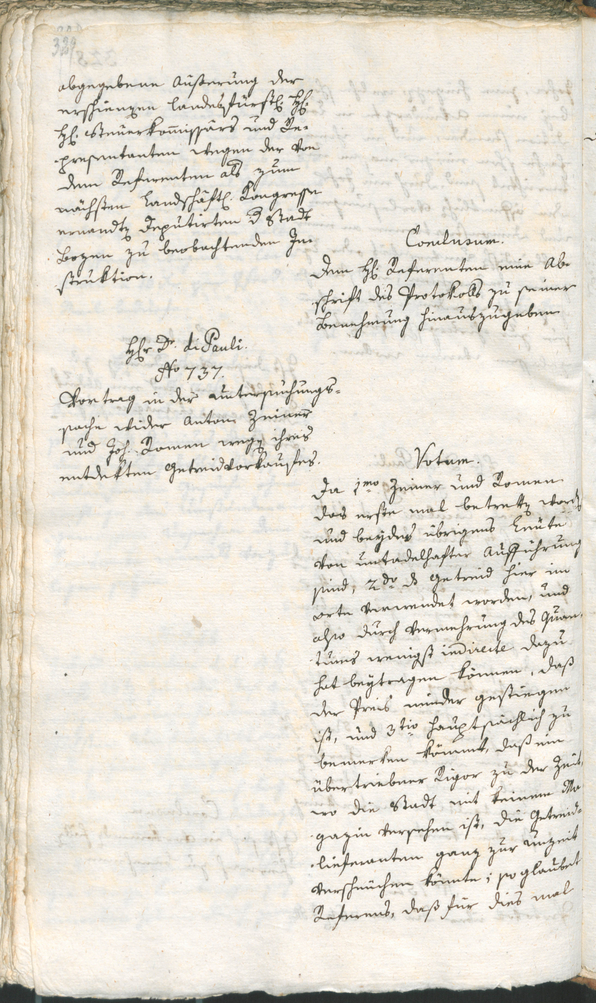 329
abgegebene Äußerung der
erschienenen landesfürstl. HH.
HH. Steuerkommissärs und Re-
presentanten wegen der von
dem Referenten als zum
nächsten Landschäftl. Kongresse
ernandtn Deputirten d Stadt
Bozen zu beobachtenden In-
struktion.
Conclusum.
Dem H. Referenten eine Ab-
schrift des Protokolls zu seiner
Benehmung hinauszugeben
Hr. Dr. di Pauli.
No 737.
Vortrag in der Untersuchungs-
sache wider Anton Zeiner
und Joh. Romen wegen ihres
entdekten Getreidvorkaufes.
Votum.
Da 1mo Zeiner und Romen
das erste mal betretten worden
und beyde übrigens Leute
von untadelhafter Aufführung
sind, 2do das Getreid hier im
orte verwendet worden, und
also durch Vermehrung des Quan-
tums wenigst indirecte dazu
hat beytragen können, daß
der Preis minder gestiegen
ist, und 3tio hauptsächlich zu
bemerken kömmt, daß ein
übertriebner Rigor zu der Zeit,
wo die Stadt mit keinem Ma-
gazin versehen ist, die Getreid-
lieferanten ganz zur Unzeit
verscheuchen könnte; so glaubet
Referens, daß für dies mal